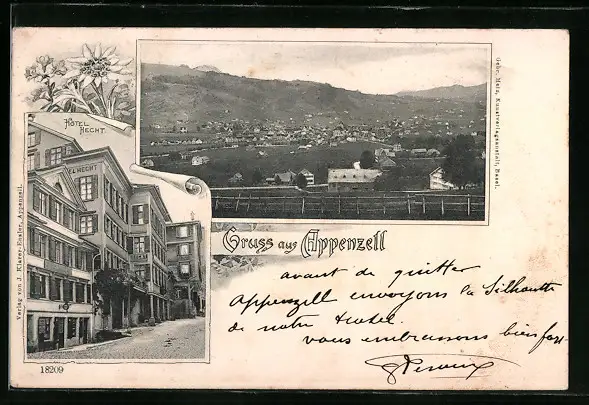 HÔTEL
HECHT.
L HECHT
Gebr. Metz, Kunstverlagsanstalt, Basel.
Verlag von J. Klarer-Ensler, Appenzell.
Gruss aus Appenzell
avant de quitter
Appenzell envoyons la Silhoutte
de notre Hotel.
vous embrassons bien fort
18209